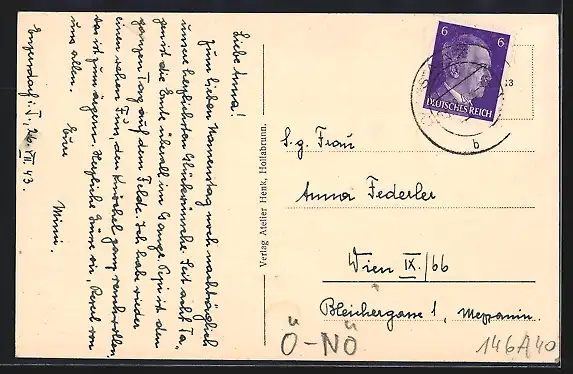 Liebe Anna!
Zum lieben Namenstag noch nachträglich
unsere herzlichsten Glückwünsche. Seit acht Ta-
gen ist die Ernte überall im Gange. Pepi ist den
ganzen Tag auf dem Felde. Ich habe wieder
einen wehen Fuß, den Knöchel ganz verschwollen,
das ist zum ärgern. Herzliche Grüße Dir, Resel von
uns allen.
Eure
Minni.
Enzersdorf i. T., 26. VII 43.
Verlag Atelier Henk, Hollabrunn.
6 6
DEUTSCHES REICH
13
b
S. g. Frau
Anna Federler
Wien IX./66
Bleichergasse 1, Mezzanin.
Ö-NÖ
146A/40